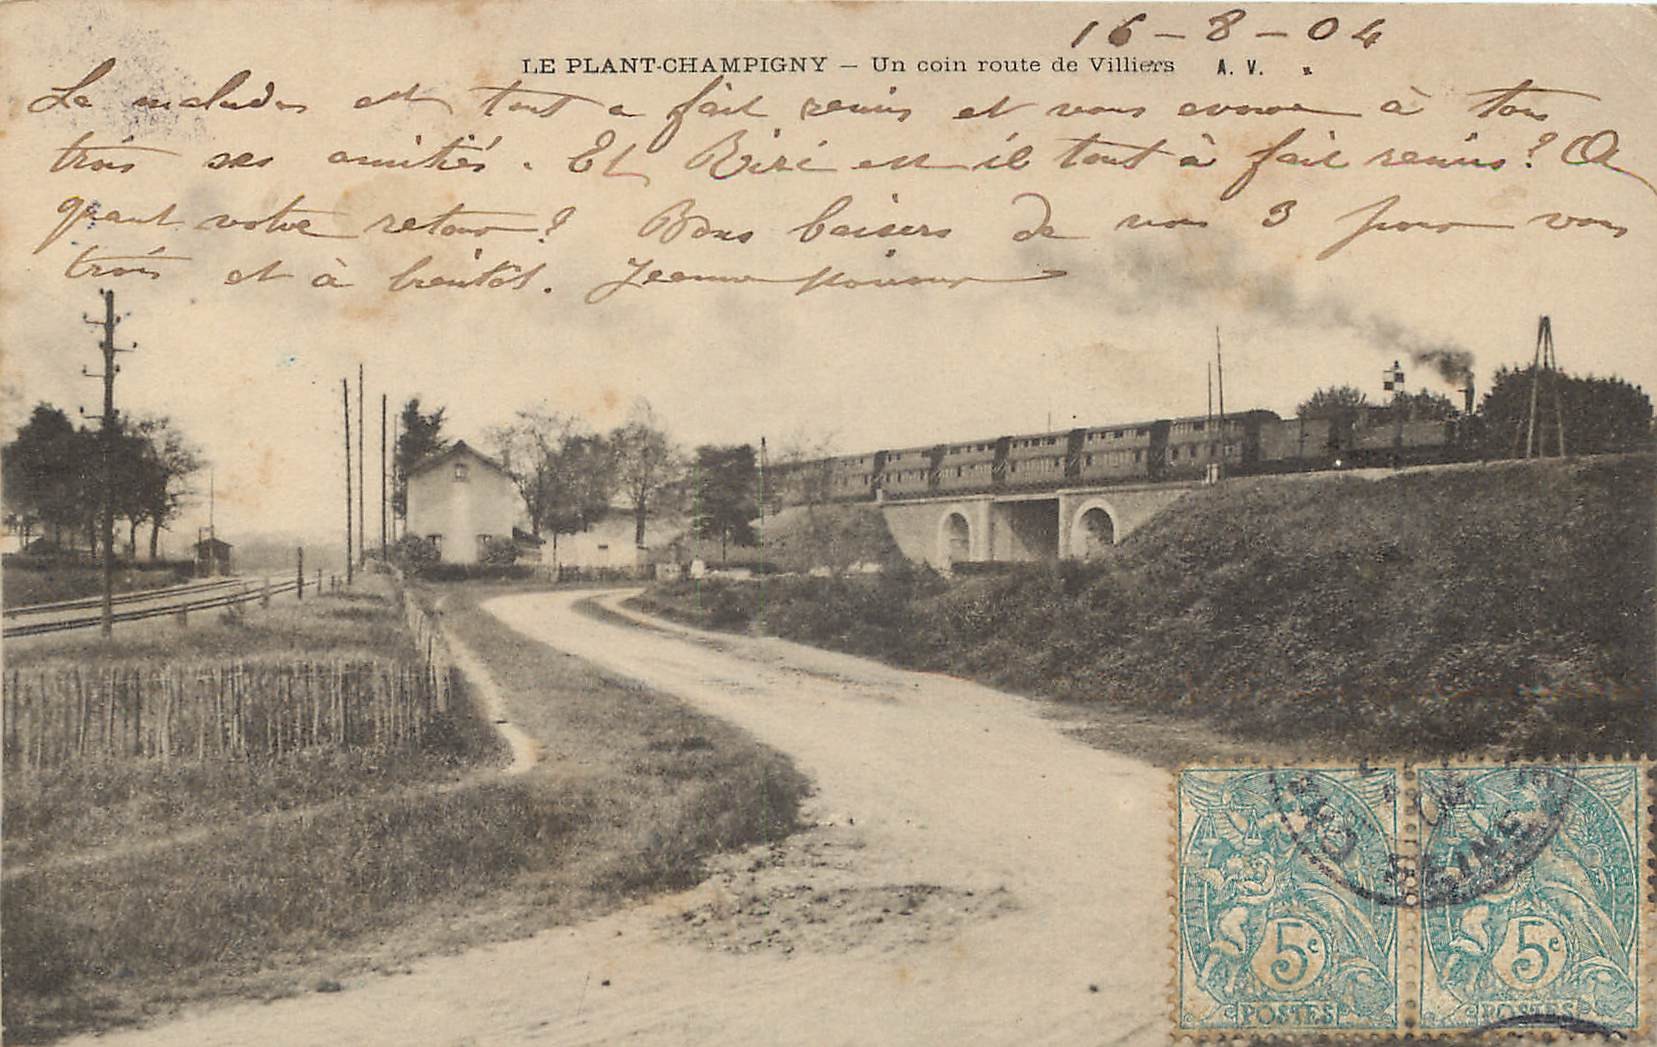 16-8-04
LE PLANT-CHAMPIGNY — Un coin route de Villiers A. V.
La malade est tout a fait remis et vous envoie à tous
trois ses amitiés. Et Riri est il tout à fait remis? A
quant votre retour? Bons baisers de nous 3 pour vous
trois et à bientôt. Jeanne
5c 5c
POSTES POSTES
SEINE